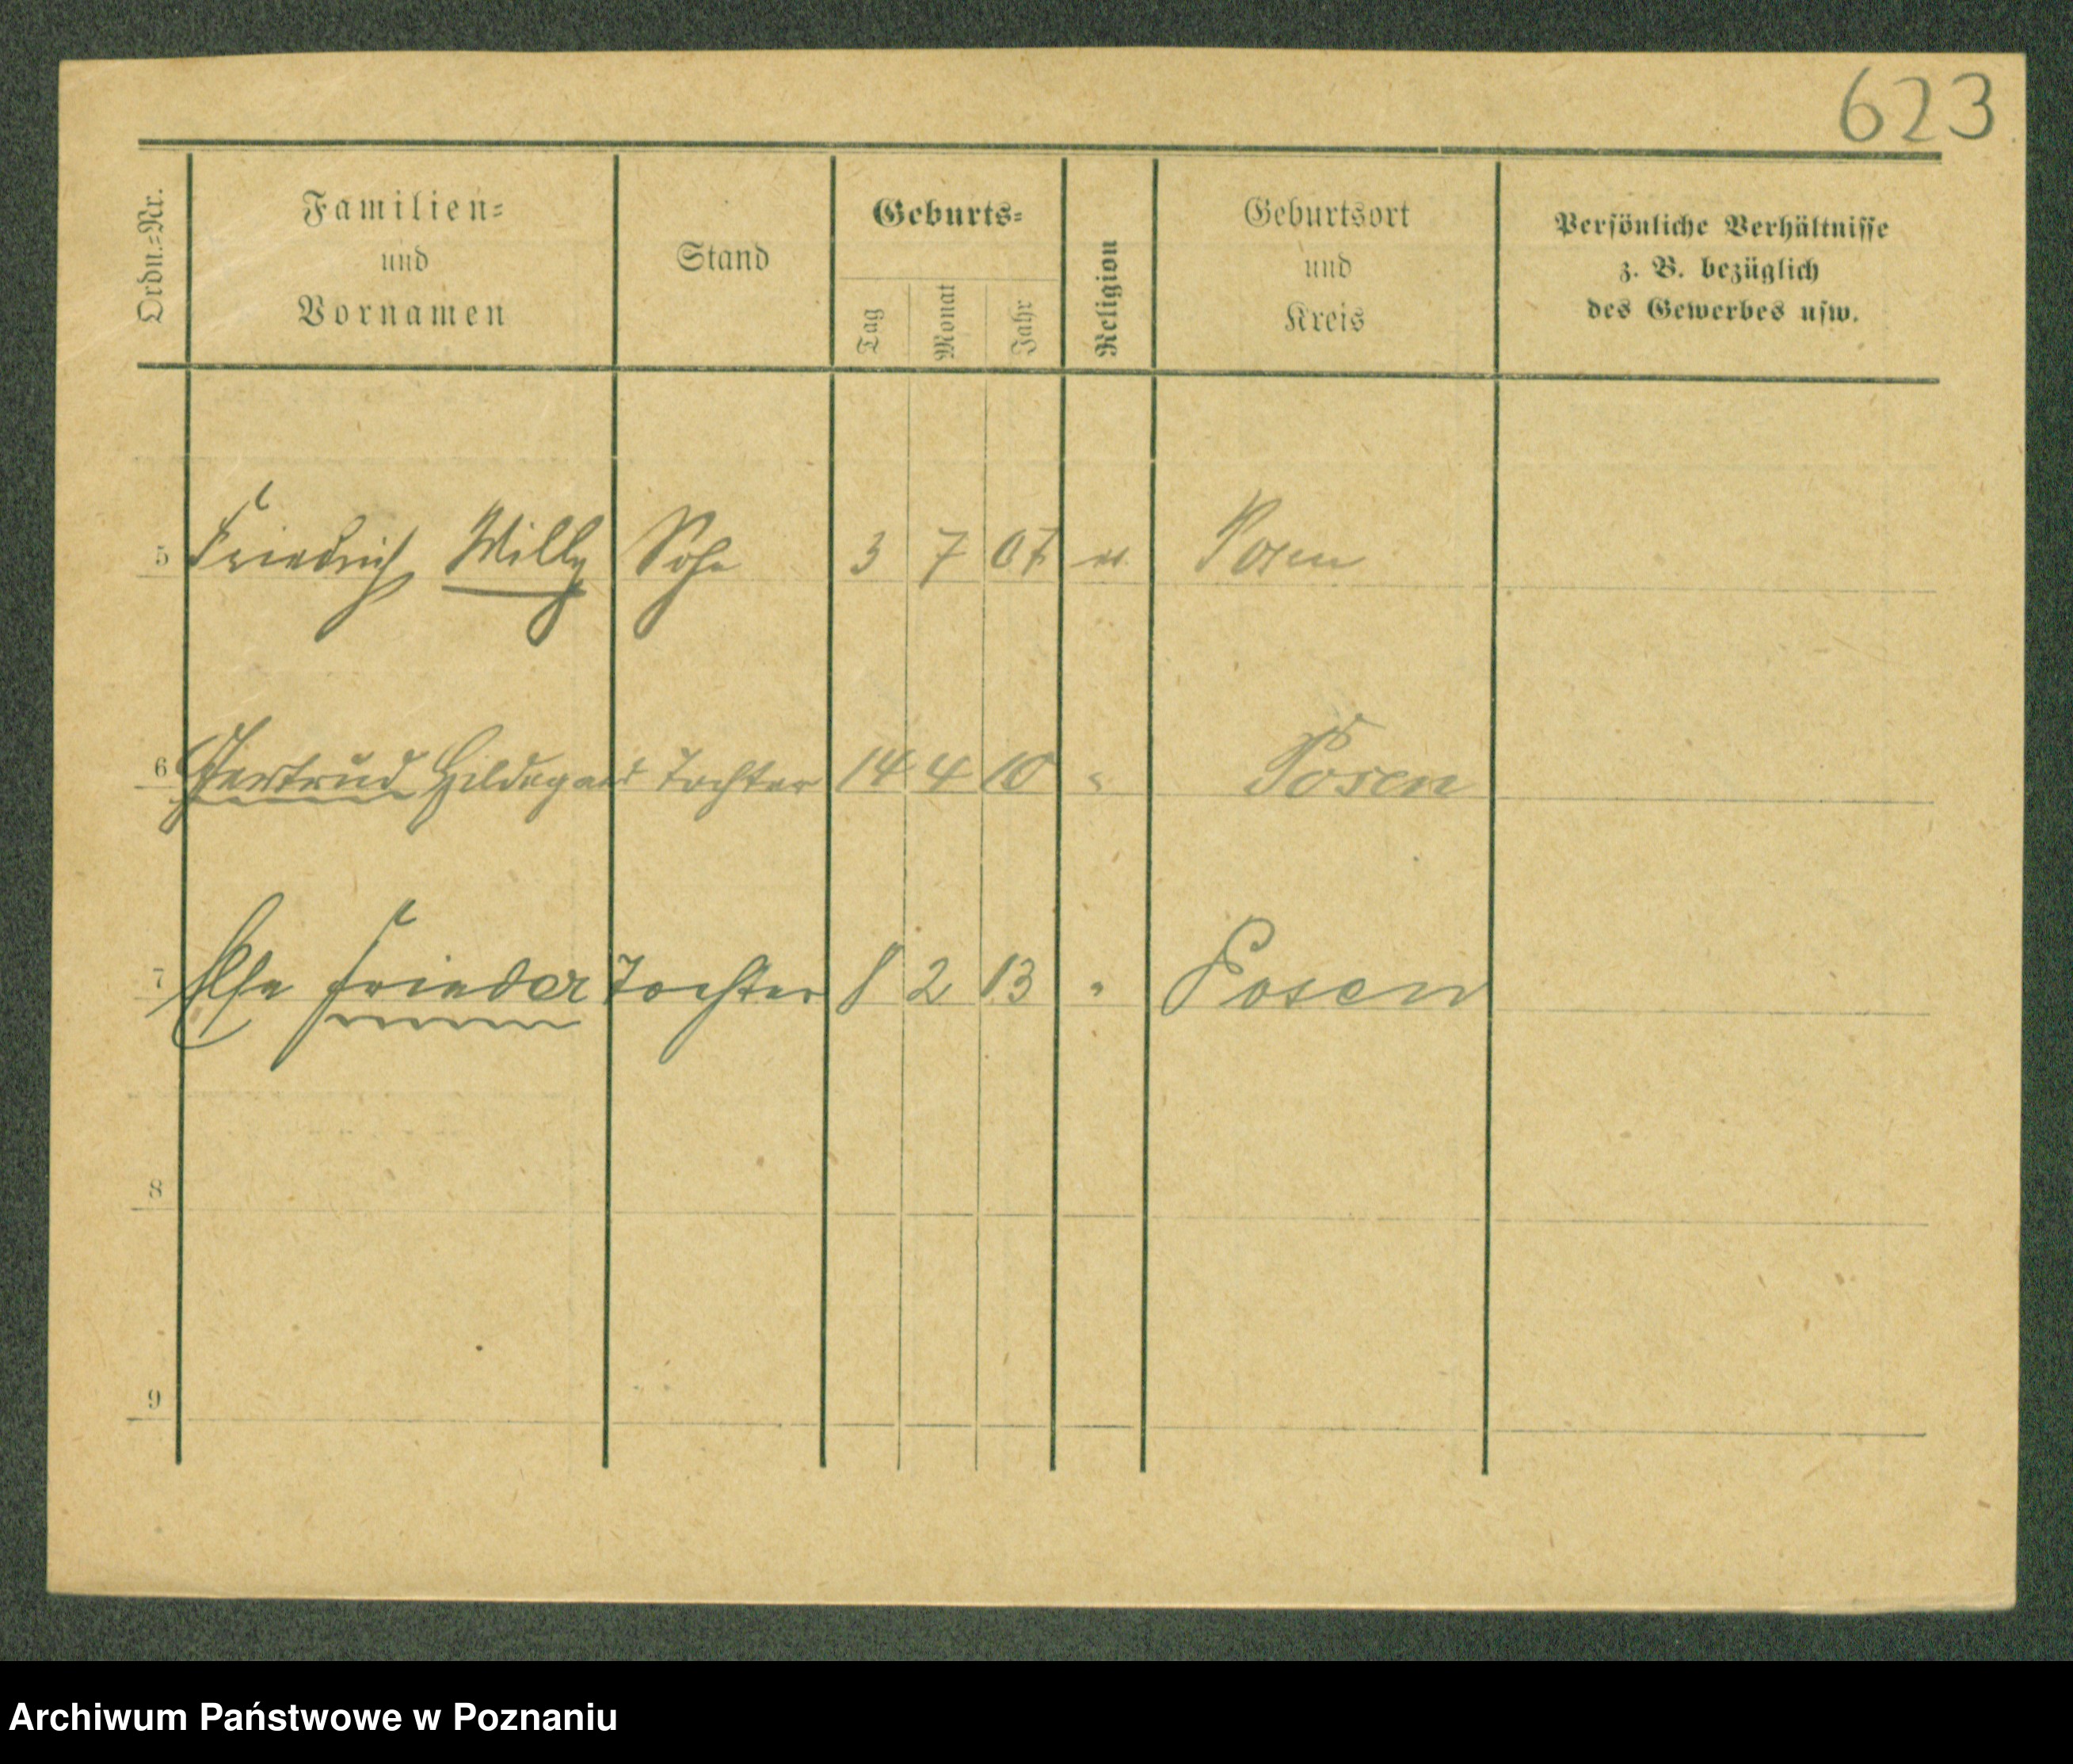 623
Ordn.=Nr.
Familien=
und
Vornamen
Stand
Geburts=
Tag
Monat
Jahr
Religion
Geburtsort
und
Kreis
Persönliche Verhältnisse
z. B. bezüglich
des Gewerbes usw.
5 Friedrich Willy Sohn 3 7 07 Posen
6 Gertrud Hildegard Tochter 14 4 10 " Posen
7 Else Tochter 8 2 13 " Posen
8
9
Archiwum Państwowe w Poznaniu